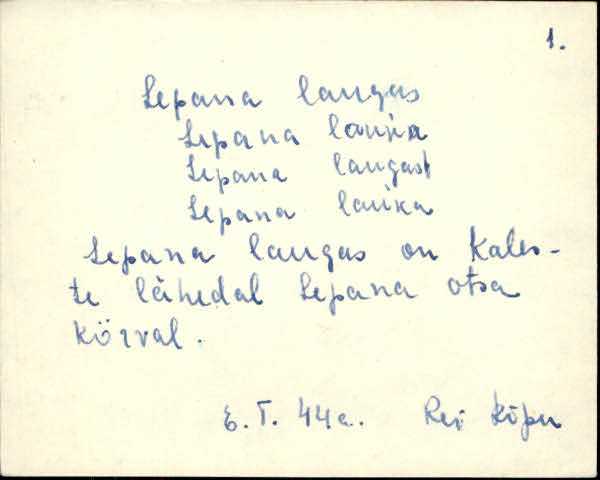 1.
Lepana laugas
Lepana lauka
Lepana laugast
Lepana lauka
Lepana laugas on Kales-
te lähedal Lepana otsa
kõrval.
E. T. 44a. Rei Kõpu